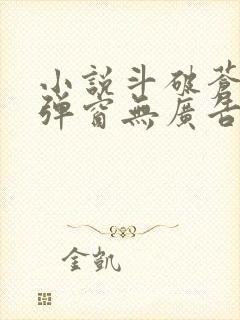 小說斗破蒼
彈窗無廣告
金凱